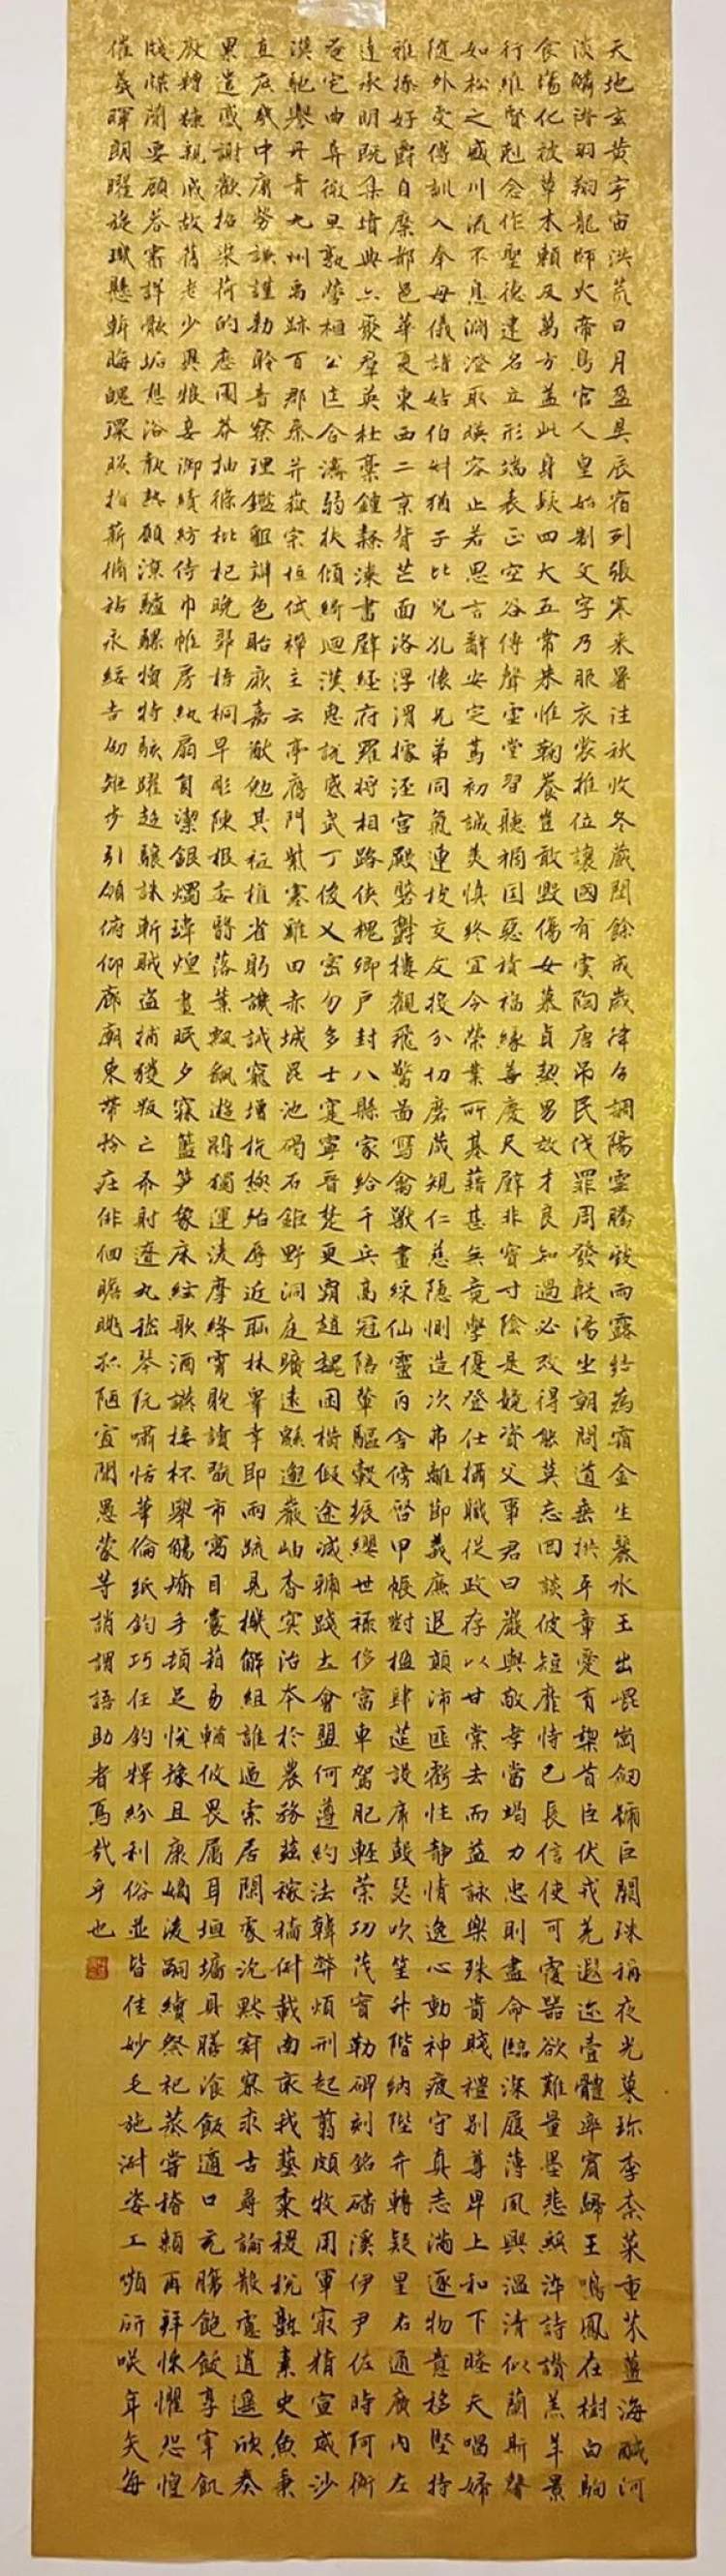 天地玄黃宇宙洪荒日月盈昃辰宿列張寒來暑往秋收冬藏閏餘成歲律呂調陽雲騰致雨露結為霜金生麗水玉出崐崗劍號巨闕珠稱夜光菓珍李柰菜重芥薑海鹹河
淡鱗潛羽翔龍師火帝鳥官人皇始制文字乃服衣裳推位讓國有虞陶唐弔民伐罪周發殷湯坐朝問道垂拱平章愛育黎首臣伏戎羌遐邇壹體率賓歸王鳴鳳在樹白駒
食場化被草木賴及萬方蓋此身髮四大五常恭惟鞠養豈敢毀傷女慕貞絜男效才良知過必改得能莫忘罔談彼短靡恃己長信使可覆器欲難量墨悲絲染詩讚羔羊景
行維賢剋念作聖德建名立形端表正空谷傳聲虛堂習聽禍因惡積福緣善慶尺璧非寶寸陰是競資父事君曰嚴與敬孝當竭力忠則盡命臨深履薄夙興溫清似蘭斯馨
如松之盛川流不息淵澄取暎容止若思言辭安定篤初誠美慎終宜令榮業所基藉甚無竟學優登仕攝職從政存以甘棠去而益詠樂殊貴賤禮別尊卑上和下睦夫唱婦
隨外受傅訓入奉母儀諸姑伯叔猶子比兒孔懷兄弟同氣連枝交友投分切磨箴規仁慈隱惻造次弗離節義廉退顛沛匪虧性靜情逸心動神疲守真志滿逐物意移堅持
雅操好爵自縻都邑華夏東西二京背芒面洛浮渭據涇宮殿磐鬱樓觀飛驚圖寫禽獸畫綵仙靈丙舍傍啓甲帳對楹肆筵設席鼓瑟吹笙升階納陛弁轉疑星右通廣內左
達承明既集墳典亦聚群英杜稾鍾隸漆書壁經府羅將相路俠槐卿戶封八縣家給千兵高冠陪輦驅轂振纓世祿侈富車駕肥輕策功茂實勒碑刻銘磻溪伊尹佐時阿衡
奄宅曲阜微旦孰營桓公匡合濟弱扶傾綺迴漢惠說感武丁俊乂密勿多士寔寧晉楚更霸趙魏困橫假途滅虢踐土會盟何遵約法韓弊煩刑起翦頗牧用軍最精宣威沙
漠馳譽丹青九州禹跡百郡秦并嶽宗恒岱禪主云亭雁門紫塞雞田赤城昆池碣石鉅野洞庭曠遠緜邈巖岫杳冥治本於農務茲稼穡俶載南畝我藝黍稷稅熟素史魚秉
直庶幾中庸勞謙謹勅聆音察理鑑貌辯色貽厥嘉猷勉其祗植省躬譏誡寵增抗極殆辱近恥林皋幸即兩疏見機解組誰逼索居閑處沈默寂寥求古尋論散慮逍遙欣奏
累遣慼謝歡招渠荷的歷園莽抽條枇杷晚翠梧桐早彫陳根委翳落葉飄颻遊鵾獨運凌摩絳霄耽讀翫市寓目囊箱易輶攸畏屬耳垣墻具膳飡飯適口充腸飽飫享宰飢
厭糟糠親戚故舊老少異粮妾御績紡侍巾帷房紈扇員潔銀燭煒煌晝眠夕寐藍笋象床絃歌酒讌接杯舉觴矯手頓足悅豫且康嫡後嗣續祭祀蒸嘗稽顙再拜悚懼恐惶
牋牒簡要顧荅審詳骸垢想浴執熱願涼驢騾犢特駭躍超驤誅斬賊盜捕獲叛亡布射遼丸嵇琴阮嘯恬筆倫紙鈞巧任釣釋紛利俗並皆佳妙毛施淑姿工顰妍咲年矢每
催羲暉朗曜旋璣懸斡晦魄環照指薪脩祜永綏吉劭矩步引領俯仰廊廟束帶矜莊徘徊瞻眺孤陋寡聞愚蒙等誚謂語助者焉哉乎也